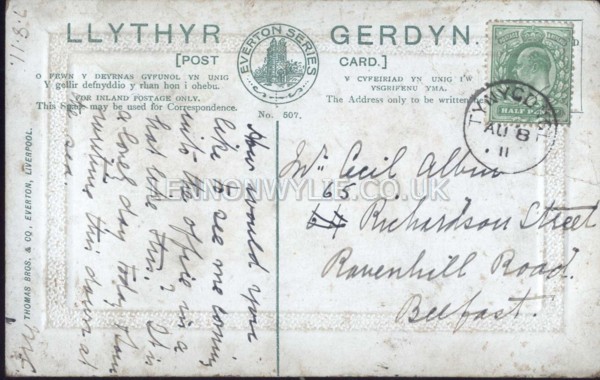 LLYTHYR GERDYN.
[POST CARD.]
EVERTON SERIES
No. 507.
O FEWN Y DEYRNAS GYFUNOL YN UNIG
Y gellir defnyddio y rhan hon i ohebu.
FOR INLAND POSTAGE ONLY.
This Space may be used for Correspondence.
Y CYFEIRIAD YN UNIG I'W
YSGRIFENU YMA.
The Address only to be written
HALF PENNY
AU 8
11
THOMAS BROS. & CO., EVERTON, LIVERPOOL.
11-8-
How would you
like to see me coming
into the office in a
hat like this?
a lovely day today
this down at
the sea.
Mr Cecil Albin
65
64 Richardson Street
Ravenhill Road
Belfast.
LENNONWYLIE.CO.UK